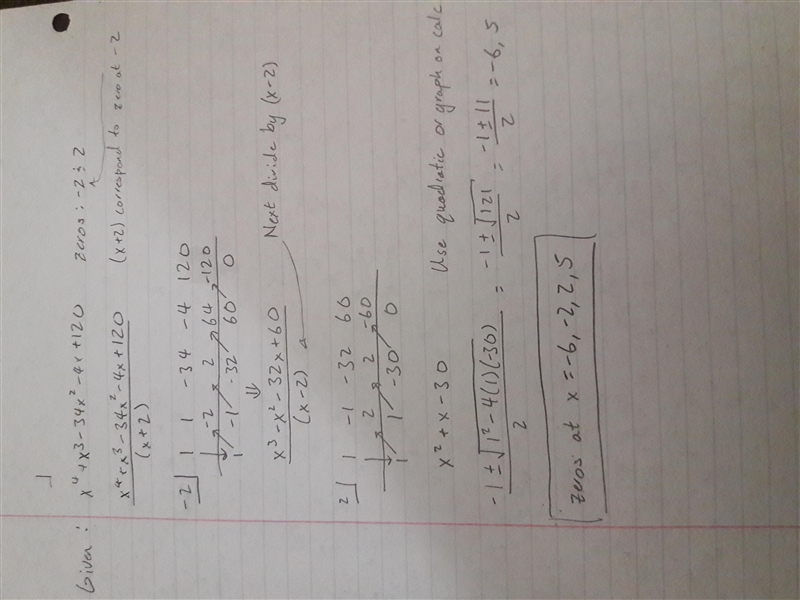 Given: x⁴+x³-34x²-4x+120 zeros: -2 & 2
x⁴+x³-34x²-4x+120
(x+2)
(x+2) correspond to zero at -2
-2 | 1 1 -34 -4 120
-2 2 64 -120
1 -1 -32 60 0
⇓
x³-x²-32x+60
(x-2)
Next divide by (x-2)
2 | 1 -1 -32 60
2 2 -60
1 1 -30 0
x²+x-30 Use quadratic or graph on calc
-1±√1²-4(1)(-30) = -1±√121 = -1±11 = -6, 5
2 2 2
zeros at x=-6,-2,2,5